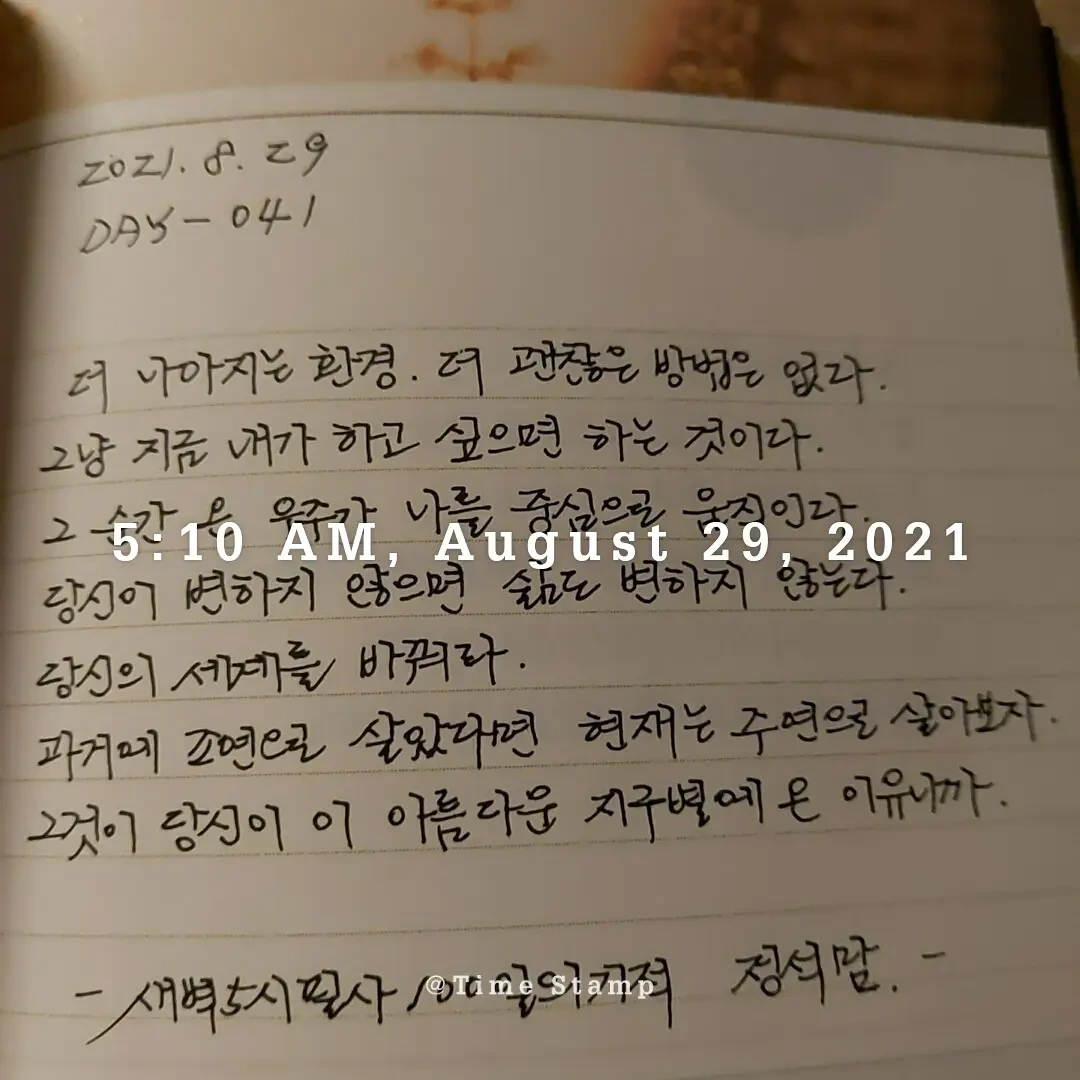 2021. 8. 29
DAY - 041
더 나아지는 환경. 더 괜찮은 방법은 없다.
그냥 지금 내가 하고 싶으면 하는 것이다.
그 순간 온 우주가 나를 중심으로 움직인다.
5:10 AM, August 29, 2021
당신이 변하지 않으면 삶도 변하지 않는다.
당신의 세계를 바꿔라.
과거에 조연으로 살았다면 현재는 주연으로 살아보자.
그것이 당신이 이 아름다운 지구별에 온 이유니까.
- 새벽5시필사 100일의기적 정석맘. -
@Time Stamp